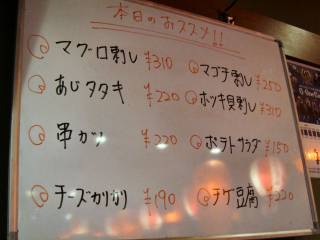 本日のおススメ!!
マグロ刺し ¥310
あじタタキ ¥220
串カツ ¥220
チーズカリカリ ¥190
マゴチ刺し ¥250
ホッキ貝刺し ¥310
ポテトサラダ ¥150
チゲ豆腐 ¥220